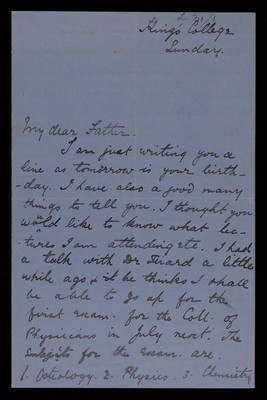 King's College
Sunday.
My dear Father.
I am just writing you a
line as tomorrow is your birth-
-day. I have also a good many
things to tell you. I thought you
would like to know what lec-
tures I am attending etc. I had
a talk with Dr a little
while ago & he thinks I shall
be able to go up for the
first exam. for the Coll. of
Physicians in July next. The
Subjects for the exam. are.
1. Osteology. 2. Physics. 3. Chemistry